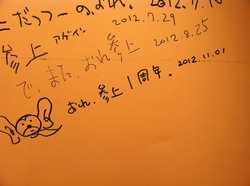 こだっつーの、おれ。2012.7.16
参上 アゲイン 2012.7.29
で、また、おれ参上 2012.8.25
おれ、参上1周年。2012.11.01